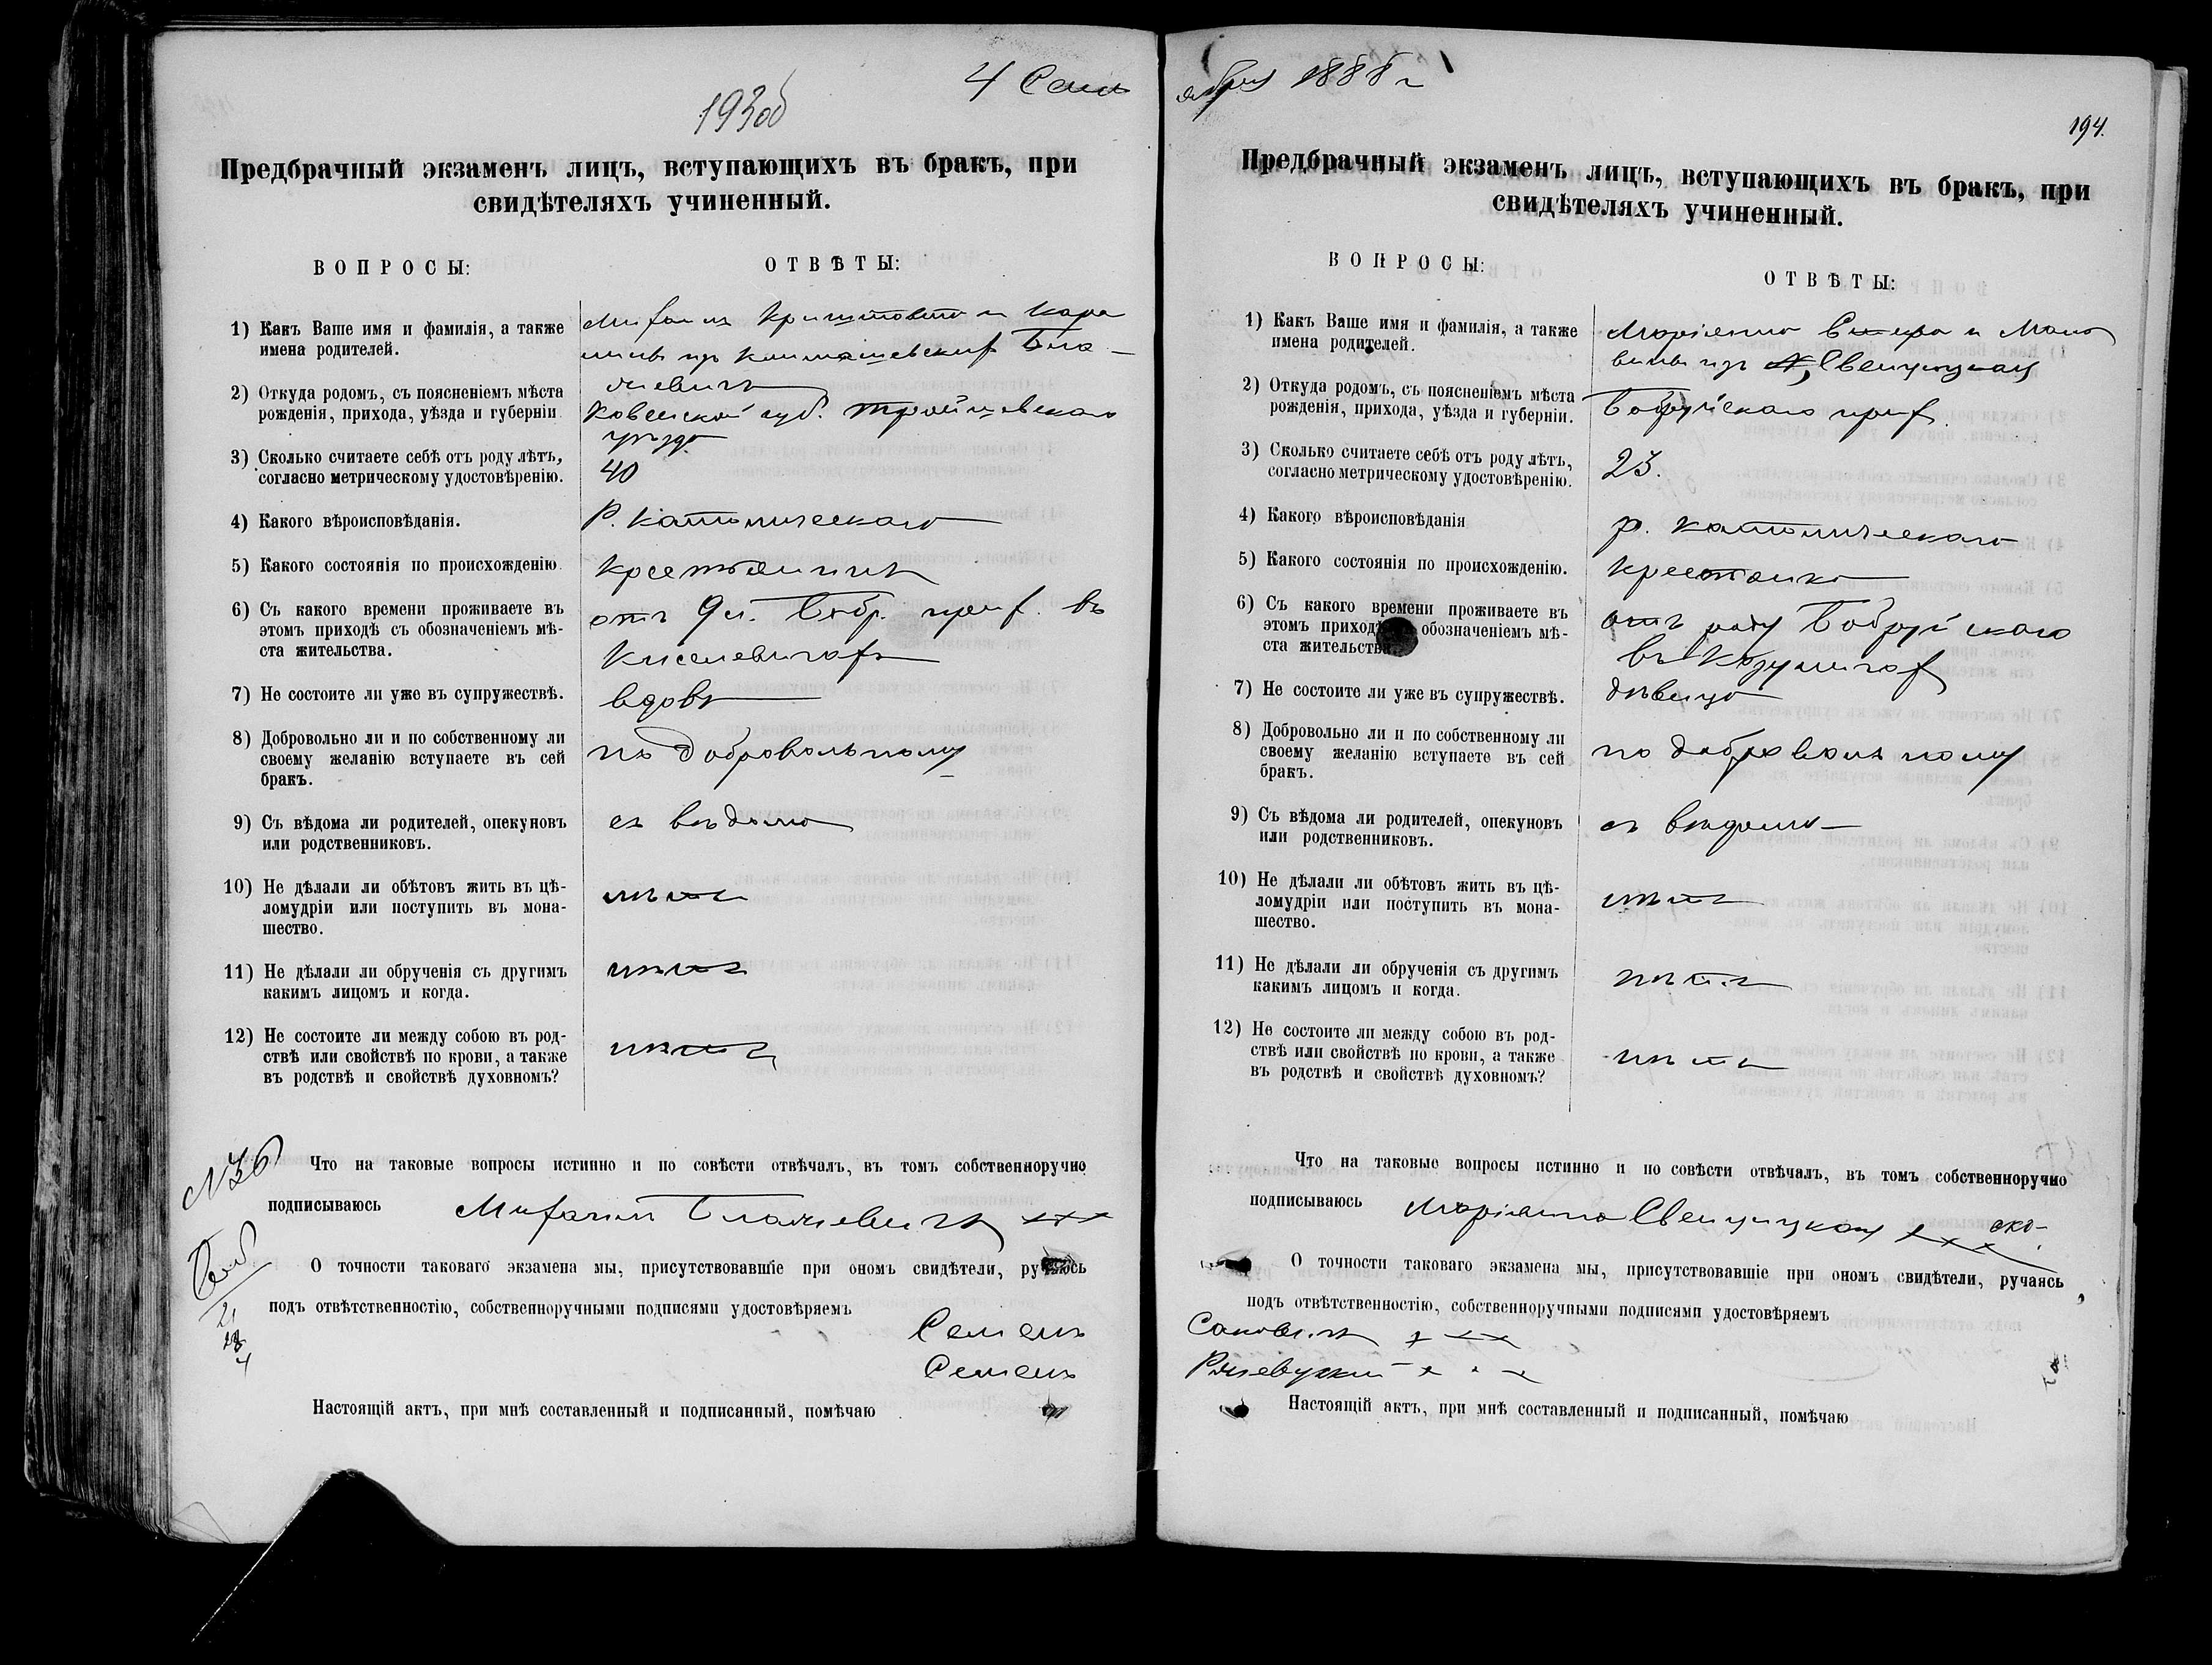 193 об
4 Сент
Предбрачный экзаменъ лицъ, вступающихъ въ бракъ, при
свидѣтеляхъ учиненный.
ВОПРОСЫ:
ОТВѢТЫ:
1) Какъ Ваше имя и фамилія, а также
имена родителей.
Михаилъ Криштофа и Каро
лины изъ
2) Откуда родомъ, съ поясненіемъ мѣста
рожденія, прихода, уѣзда и губерніи
Ковенской губ.
уѣзда
3) Сколько считаете себѣ отъ роду лѣтъ,
согласно метрическому удостовѣренію.
40
4) Какого вѣроисповѣданія.
Р. Католическаго
5) Какого состоянія по происхожденію.
крестьянинъ
6) Съ какого времени проживаете въ
этомъ приходѣ съ обозначеніемъ мѣ-
ста жительства.
отъ 9 л. Бобр. прих. въ
Киселевичахъ
7) Не состоите ли уже въ супружествѣ.
вдовъ
8) Добровольно ли и по собственному ли
своему желанію вступаете въ сей
бракъ.
по добровольному
9) Съ вѣдома ли родителей, опекуновъ
или родственниковъ.
съ вѣдома
10) Не дѣлали ли обѣтовъ жить въ цѣ-
ломудріи или поступить въ мона-
шество.
нѣтъ
11) Не дѣлали ли обрученія съ другимъ
какимъ лицомъ и когда.
нѣтъ
12) Не состоите ли между собою въ род-
ствѣ или свойствѣ по крови, а также
въ родствѣ и свойствѣ духовномъ?
нѣтъ
N36
Что на таковые вопросы истинно и по совѣсти отвѣчалъ, въ томъ собственноручно
подписываюсь Михаилъ xxx
О точности таковаго экзамена мы, присутствовавшіе при ономъ свидѣтели, ручаясь
подъ отвѣтственностію, собственноручными подписями удостовѣряемъ
Семенъ
Семенъ
Настоящій актъ, при мнѣ составленный и подписанный, помѣчаю
ября 1888 г
194.
Предбрачный экзаменъ лицъ, вступающихъ въ бракъ, при
свидѣтеляхъ учиненный.
ВОПРОСЫ:
ОТВѢТЫ:
1) Какъ Ваше имя и фамилія, а также
имена родителей.
Маріянна
изъ Свенцицкая
2) Откуда родомъ, съ поясненіемъ мѣста
рожденія, прихода, уѣзда и губерніи.
Бобруйскаго прих.
3) Сколько считаете себѣ отъ роду лѣтъ,
согласно метрическому удостовѣренію.
23.
4) Какого вѣроисповѣданія
р. католическаго
5) Какого состоянія по происхожденію.
крестьянка
6) Съ какого времени проживаете въ
этомъ приходѣ обозначеніемъ мѣ-
ста жительства
отъ роду Бобруйскаго
въ
7) Не состоите ли уже въ супружествѣ.
дѣвица
8) Добровольно ли и по собственному ли
своему желанію вступаете въ сей
бракъ.
по добровольному
9) Съ вѣдома ли родителей, опекуновъ
или родственниковъ.
съ вѣдома
10) Не дѣлали ли обѣтовъ жить въ цѣ-
ломудріи или поступить въ мона-
шество.
нѣтъ
11) Не дѣлали ли обрученія съ другимъ
какимъ лицомъ и когда.
нѣтъ
12) Не состоите ли между собою въ род-
ствѣ или свойствѣ по крови, а также
въ родствѣ и свойствѣ духовномъ?
нѣтъ
Что на таковые вопросы истинно и по совѣсти отвѣчалъ, въ томъ собственноручно
подписываюсь Маріянна Свенцицкая xxx
О точности таковаго экзамена мы, присутствовавшіе при ономъ свидѣтели, ручаясь
подъ отвѣтственностію, собственноручными подписями удостовѣряемъ
Саковичъ xxx
Настоящій актъ, при мнѣ составленный и подписанный, помѣчаю